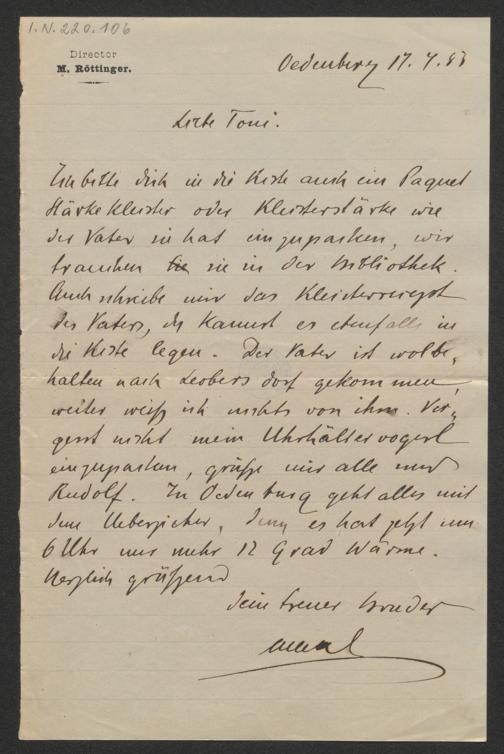 I.N. 220.106
Director
M. Röttinger.
Oedenburg 17. 4. 83
Liebe Toni.
Ich bitte dich in die Kiste auch ein Paquet
Stärkekleister oder Kleisterstärke wie
der Vater sie hat einzupacken, wir
brauchen sie in der Bibliothek.
Auch schreibe mir das Kleisterrecept
des Vaters, du kannst es ebenfalls in
die Kiste legen. Der Vater ist wolbe-
halten nach Leobersdorf gekommen,
weiter weiß ich nichts von ihm. Ver-
gesst nicht mein Uhrhältervogerl
einzupacken, grüße mir alle und
Rudolf. In Oedenburg geht alles mit
dem Ueberzieher, denn es hat jetzt um
6 Uhr nur mehr 12 Grad Wärme.
Herzlich grüßend
dein treuer Bruder